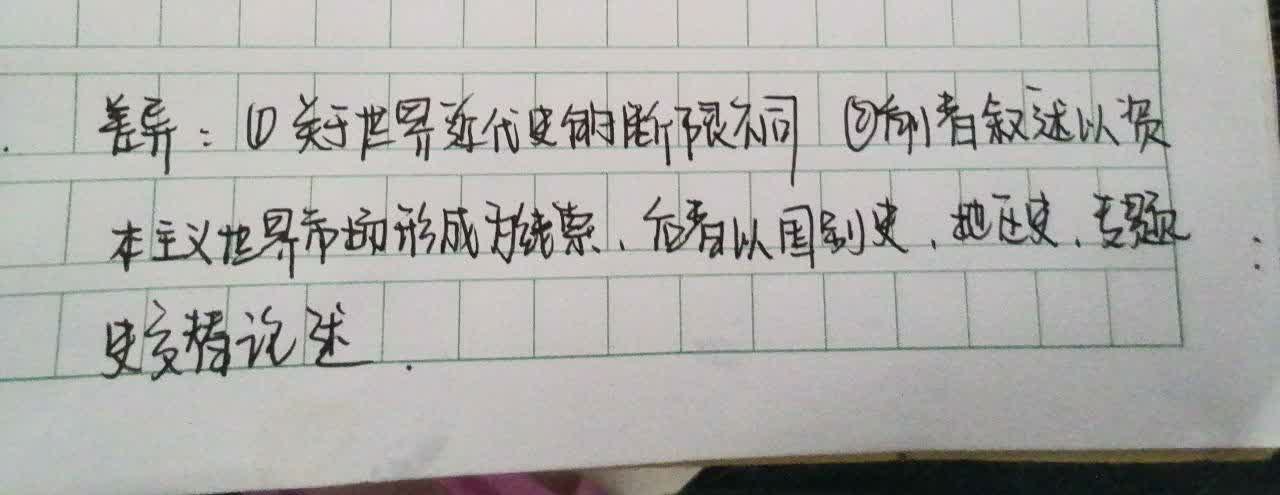 差异：①关于世界近代史的断限不同 ②前者叙述以资
本主义世界市场形成为线索、后者以国别史、地区史、专题
史交替论述.